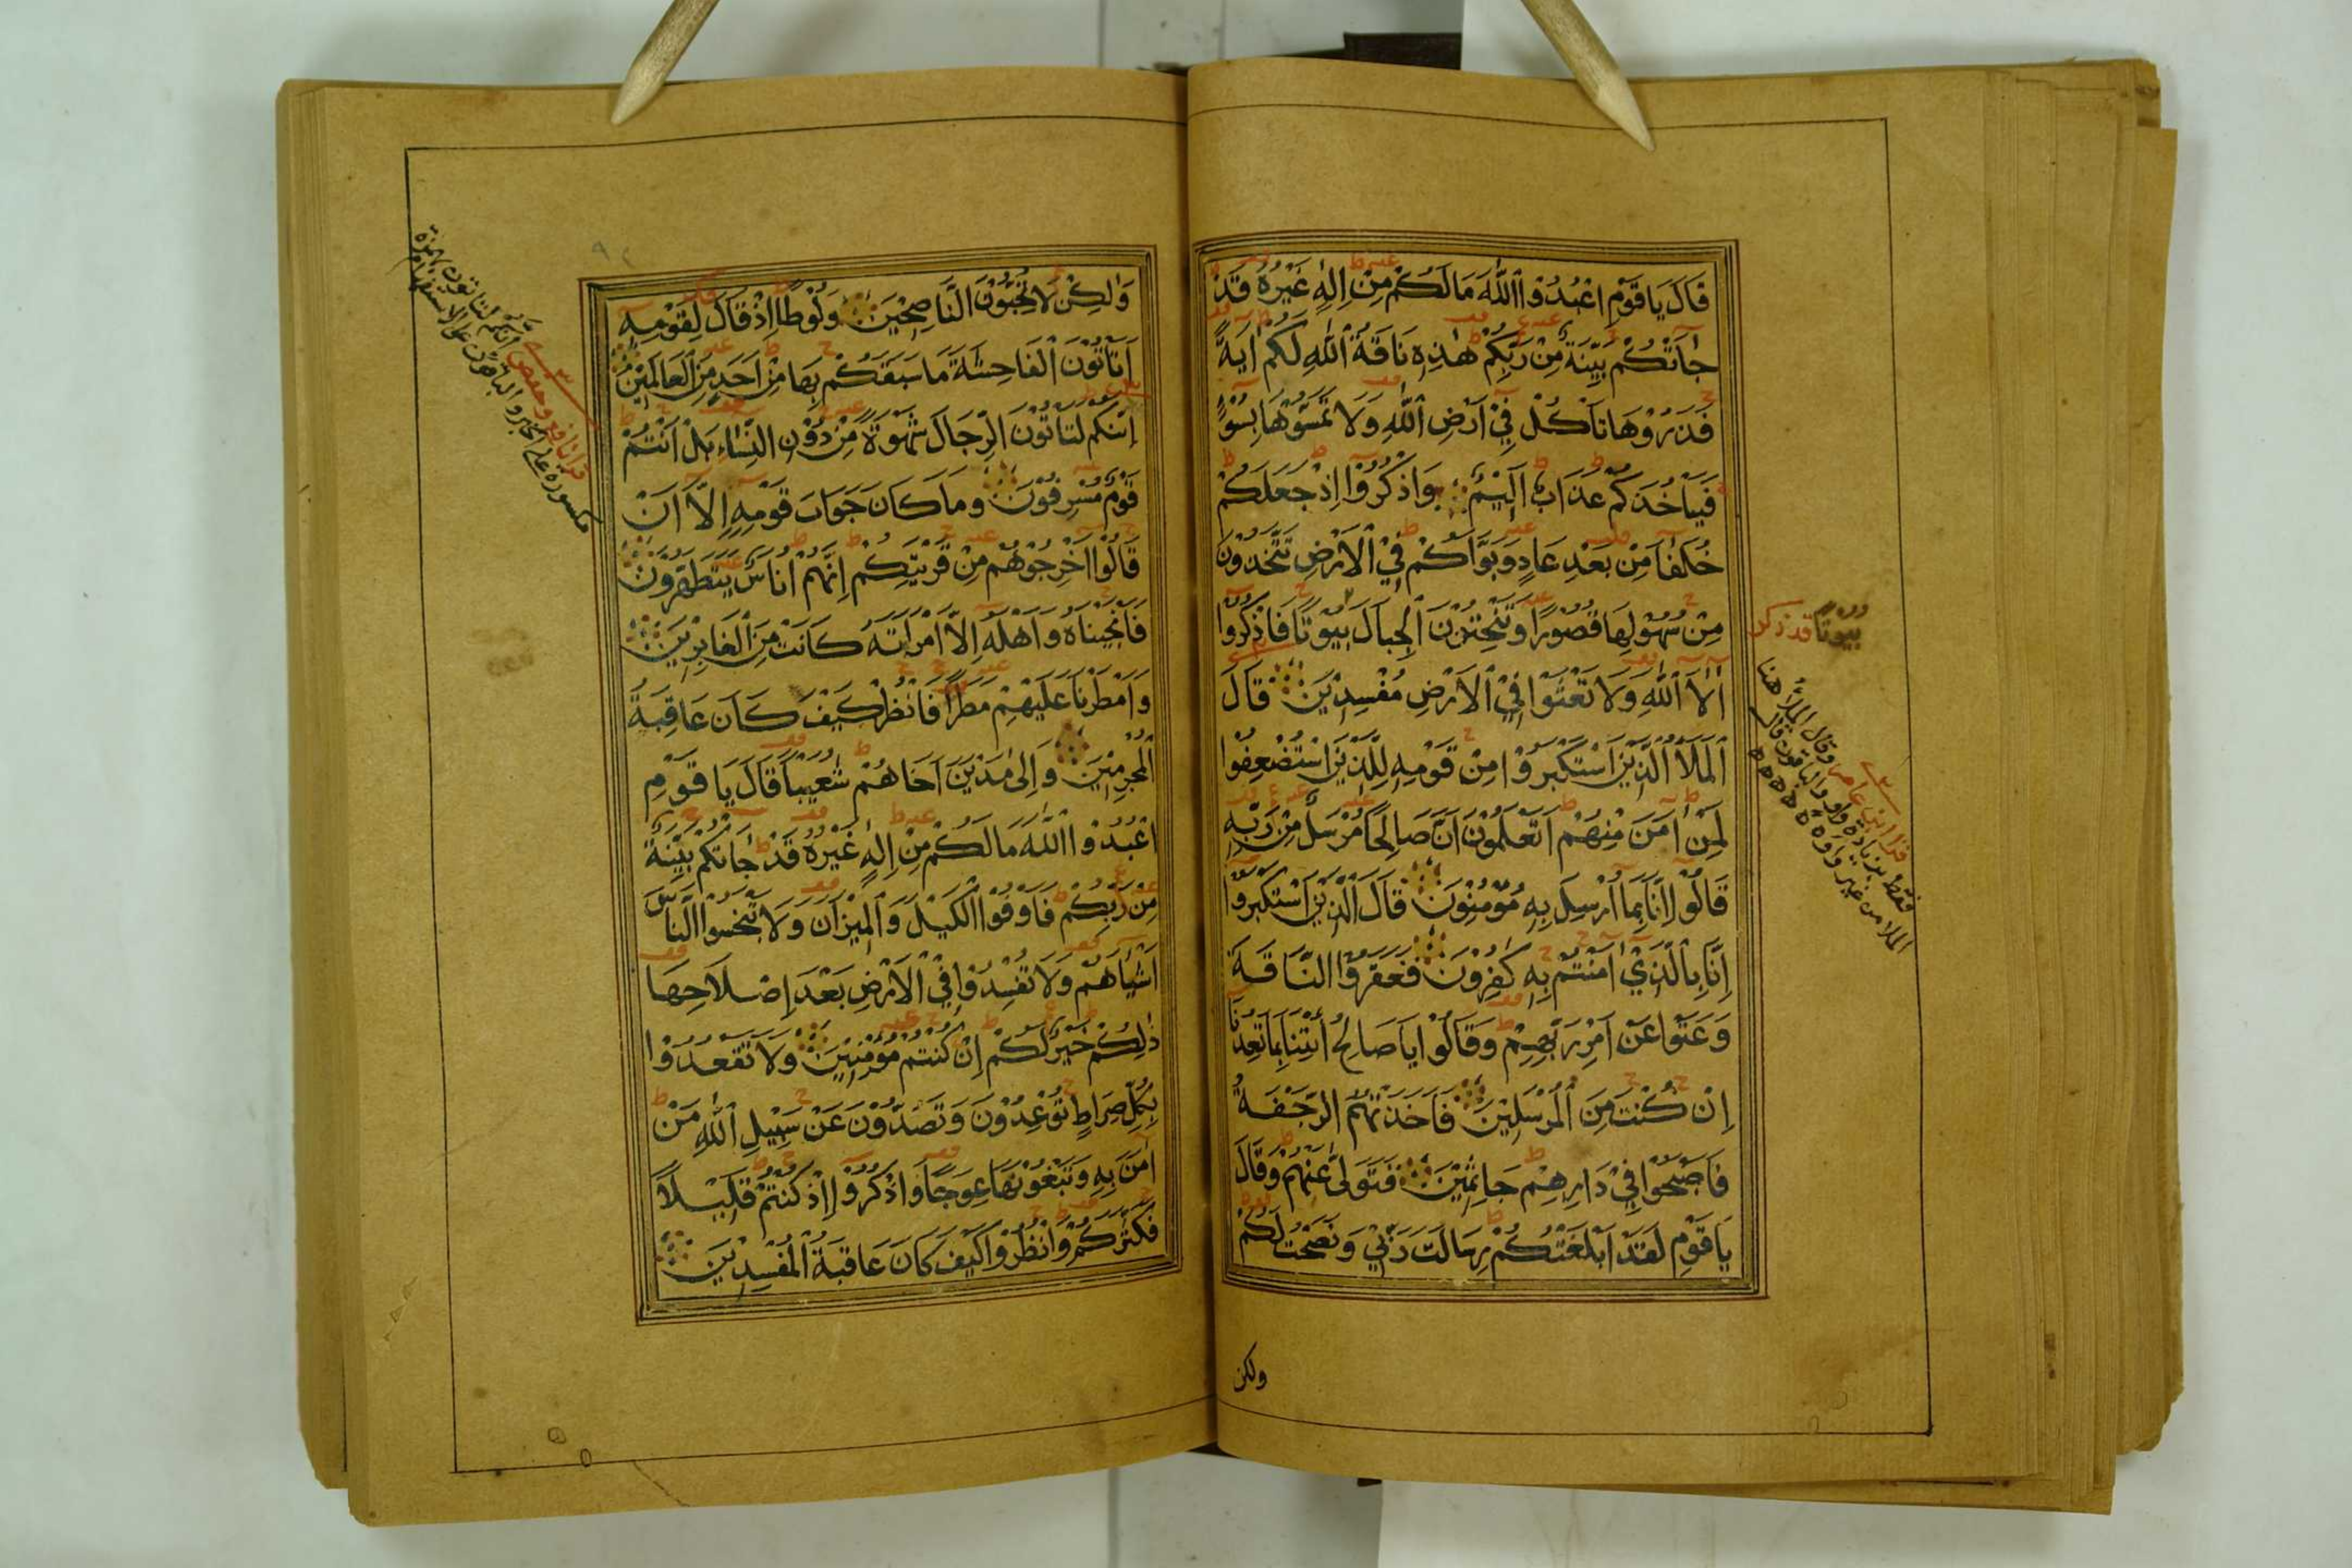 قَالَ يَا قَوْمِ اعْبُدُوا اللّٰهَ مَا لَكُمْ مِنْ اِلٰهٍ غَيْرُهُ قَدْ
جَاۤتْكُمْ بَيِّنَةٌ مِنْ رَبِّكُمْ هٰذِهِ نَاقَةُ اللّٰهِ لَكُمْ اٰيَةً
فَذَرُوْهَا تَاْكُلْ فِيْ اَرْضِ اللّٰهِ وَلَا تَمَسُّوْهَا بِسُوْۤءٍ
فَيَاْخُذَكُمْ عَذَابٌ اَلِيْمٌ وَاذْكُرُوْۤا اِذْ جَعَلَكُمْ
خُلَفَاۤءَ مِنْ بَعْدِ عَادٍ وَبَوَّاَكُمْ فِيْ الْاَرْضِ تَتَّخِذُوْنَ
مِنْ سُهُوْلِهَا قُصُوْرًا وَتَنْحِتُوْنَ الْجِبَالَ بُيُوْتًا فَاذْكُرُوْۤا
اٰلَاۤءَ اللّٰهِ وَلَا تَعْثَوْا فِيْ الْاَرْضِ مُفْسِدِيْنَ قَالَ
الْمَلَاُ الَّذِيْنَ اسْتَكْبَرُوْا مِنْ قَوْمِهِ لِلَّذِيْنَ اسْتُضْعِفُوْا
لِمَنْ اٰمَنَ مِنْهُمْ اَتَعْلَمُوْنَ اَنَّ صَالِحًا مُرْسَلٌ مِنْ رَبِّهِ
قَالُوْۤا اِنَّا بِمَاۤ اُرْسِلَ بِهِ مُؤْمِنُوْنَ قَالَ الَّذِيْنَ اسْتَكْبَرُوْۤا
اِنَّا بِالَّذِيْ اٰمَنْتُمْ بِهِ كٰفِرُوْنَ فَعَقَرُوْا النَّاقَةَ
وَعَتَوْا عَنْ اَمْرِ رَبِّهِمْ وَقَالُوْا يَا صَالِحُ ائْتِنَا بِمَا تَعِدُنَا
اِنْ كُنْتَ مِنَ الْمُرْسَلِيْنَ فَاَخَذَتْهُمُ الرَّجْفَةُ
فَاَصْبَحُوْا فِيْ دَارِهِمْ جَاثِمِيْنَ فَتَوَلّٰى عَنْهُمْ وَقَالَ
يَا قَوْمِ لَقَدْ اَبْلَغْتُكُمْ رِسَالَتَ رَبِّيْ وَنَصَحْتُ لَكُمْ
ولكن
بيوتًا قد ذكر
قرا ابن عامر وقال الملأ هنا
فقط بزيادة واو والباقون قال
الملا من غير واو
وَلٰكِنْ لَا تُحِبُّوْنَ النَّاصِحِيْنَ وَلُوْطًا اِذْ قَالَ لِقَوْمِهِ
اَتَاْتُوْنَ الْفَاحِشَةَ مَا سَبَقَكُمْ بِهَا مِنْ اَحَدٍ مِنَ الْعَالَمِيْنَ
اِنَّكُمْ لَتَاْتُوْنَ الرِّجَالَ شَهْوَةً مِنْ دُوْنِ النِّسَاۤءِ بَلْ اَنْتُمْ
قَوْمٌ مُسْرِفُوْنَ وَمَا كَانَ جَوَابَ قَوْمِهِ اِلَّاۤ اَنْ
قَالُوْۤا اَخْرِجُوْهُمْ مِنْ قَرْيَتِكُمْ اِنَّهُمْ اُنَاسٌ يَتَطَهَّرُوْنَ
فَاَنْجَيْنَاهُ وَاَهْلَهُ اِلَّا امْرَاَتَهُ كَانَتْ مِنَ الْغَابِرِيْنَ
وَاَمْطَرْنَا عَلَيْهِمْ مَطَرًا فَانْظُرْ كَيْفَ كَانَ عَاقِبَةُ
الْمُجْرِمِيْنَ وَاِلٰى مَدْيَنَ اَخَاهُمْ شُعَيْبًا قَالَ يَا قَوْمِ
اعْبُدُوْا اللّٰهَ مَا لَكُمْ مِنْ اِلٰهٍ غَيْرُهُ قَدْ جَاۤتْكُمْ بَيِّنَةٌ
مِنْ رَبِّكُمْ فَاَوْفُوْا الْكَيْلَ وَالْمِيْزَانَ وَلَا تَبْخَسُوْا النَّاسَ
اَشْيَاۤهُمْ وَلَا تُفْسِدُوْا فِيْ الْاَرْضِ بَعْدَ اِصْلَاحِهَا
ذٰلِكُمْ خَيْرٌ لَكُمْ اِنْ كُنْتُمْ مُؤْمِنِيْنَ وَلَا تَقْعُدُوْا
بِكُلِّ صِرَاطٍ تُوْعِدُوْنَ وَتَصُدُّوْنَ عَنْ سَبِيْلِ اللّٰهِ مَنْ
اٰمَنَ بِهِ وَتَبْغُوْنَهَا عِوَجًا وَاذْكُرُوْۤا اِذْ كُنْتُمْ قَلِيْلًا
فَكَثَّرَكُمْ وَانْظُرُوْا كَيْفَ كَانَ عَاقِبَةُ الْمُفْسِدِيْنَ
قرا نافع وحفص انكم لتاتون بهمزة
مكسورة على الخبر والباقون على الاستفهام